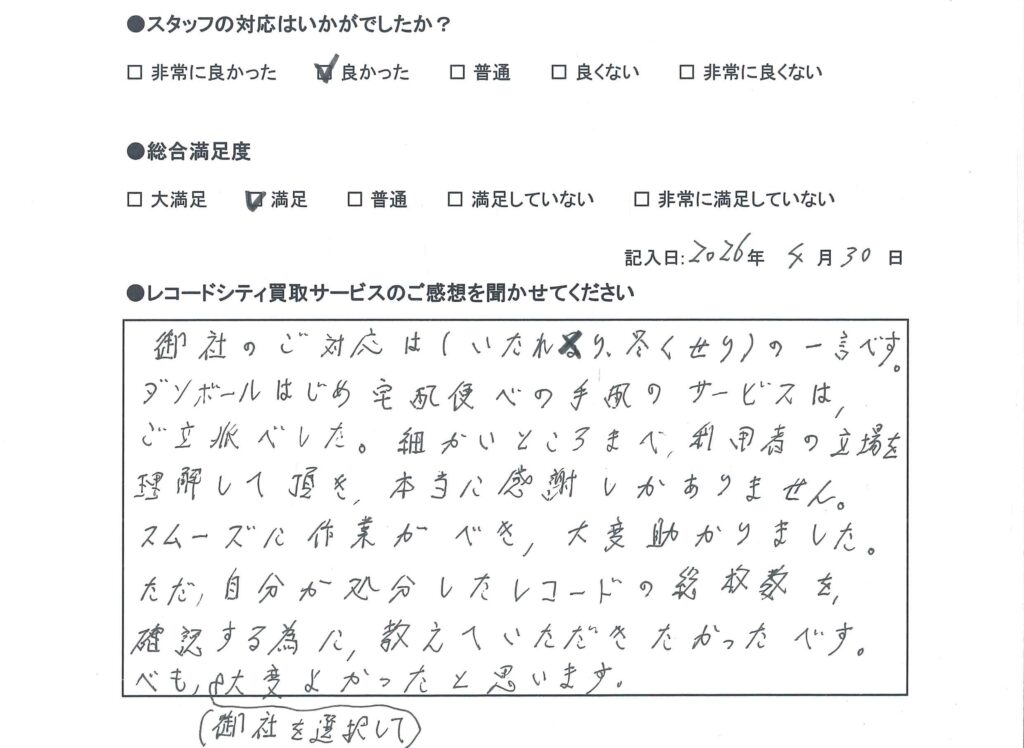 ●スタッフの対応はいかがでしたか？
□ 非常に良かった ☑ 良かった □ 普通 □ 良くない □ 非常に良くない
●総合満足度
□ 大満足 ☑ 満足 □ 普通 □ 満足していない □ 非常に満足していない
記入日:2026年 4月30日
●レコードシティ買取サービスのご感想を聞かせてください
御社のご対応は(いたれり、尽くせり)の一言です。
ダンボールはじめ宅配便での手配のサービスは、
ご立派でした。細かいところまで、利用者の立場を
理解して頂き、本当に感謝しかありません。
スムーズに作業ができ、大変助かりました。
ただ、自分が処分したレコードの総枚数を、
確認する為に、教えていただきたかったです。
でも、大変よかったと思います。
(御社を選択して)